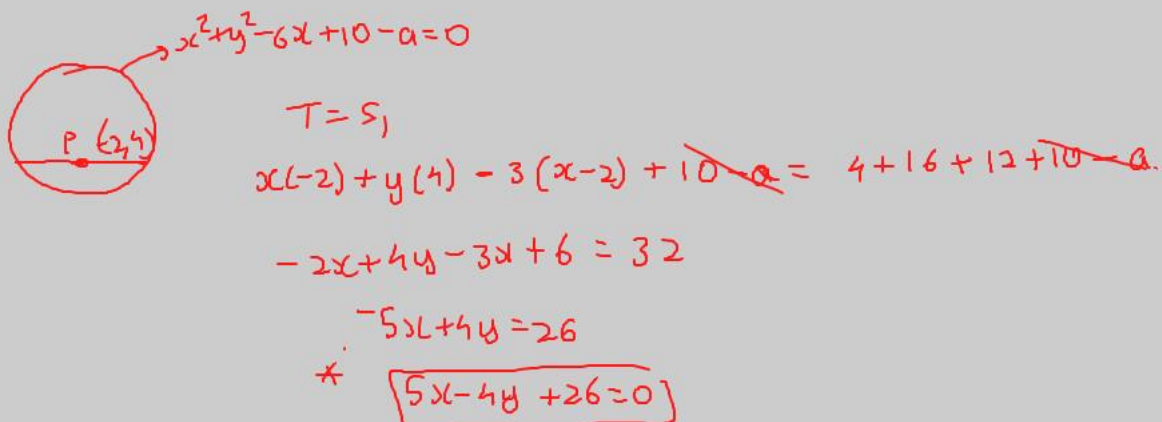 x²+y²-6x+10-a=0
P (-2,4)
T=S₁
x(-2)+y(4)-3(x-2)+10-a= 4+16+12+10-a.
-2x+4y-3x+6=32
-5x+4y=26
* 5x-4y+26=0